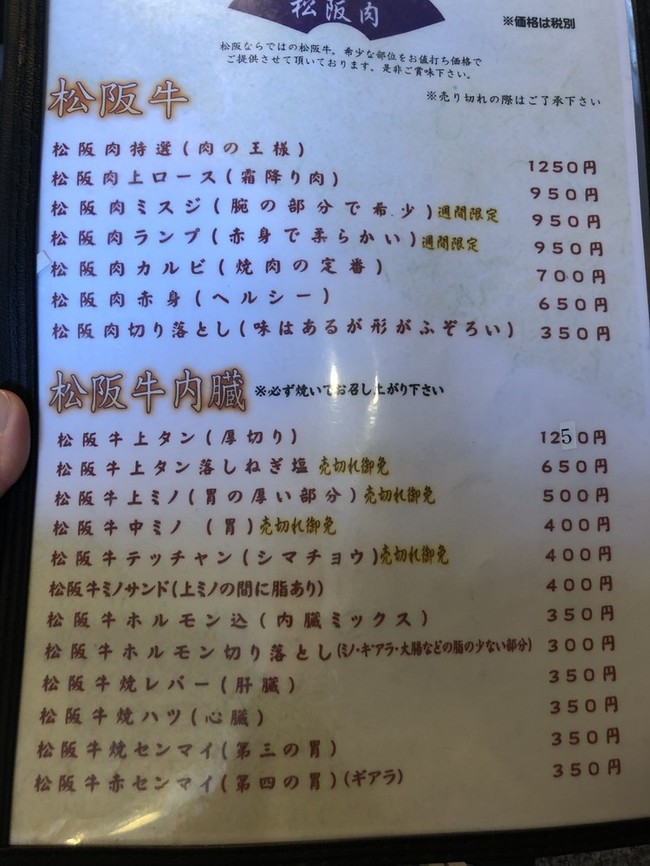 松阪肉
※価格は税別
松阪ならではの松阪牛。希少な部位をお値打ち価格で
ご提供させて頂いております。是非ご賞味下さい。
松阪牛
※売り切れの際はご了承下さい
松阪肉特選(肉の王様) 1250円
松阪肉上ロース(霜降り肉) 950円
松阪肉ミスジ(腕の部分で希少)週間限定 950円
松阪肉ランプ(赤身で柔らかい)週間限定 950円
松阪肉カルビ(焼肉の定番) 700円
松阪肉赤身(ヘルシー) 650円
松阪肉切り落とし(味はあるが形がふぞろい) 350円
松阪牛内臓 ※必ず焼いてお召し上がり下さい
松阪牛上タン(厚切り) 1250円
松阪牛上タン落しねぎ塩 売切れ御免 650円
松阪牛上ミノ(胃の厚い部分)売切れ御免 500円
松阪牛中ミノ (胃)売切れ御免 400円
松阪牛テッチャン(シマチョウ)売切れ御免 400円
松阪牛ミノサンド(上ミノの間に脂あり) 400円
松阪牛ホルモン込(内臓ミックス) 350円
松阪牛ホルモン切り落とし(ミノ・ギアラ・大腸などの脂の少ない部分) 300円
松阪牛焼レバー(肝臓) 350円
松阪牛焼ハツ(心臓) 350円
松阪牛焼センマイ(第三の胃) 350円
松阪牛赤センマイ(第四の胃)(ギアラ) 350円